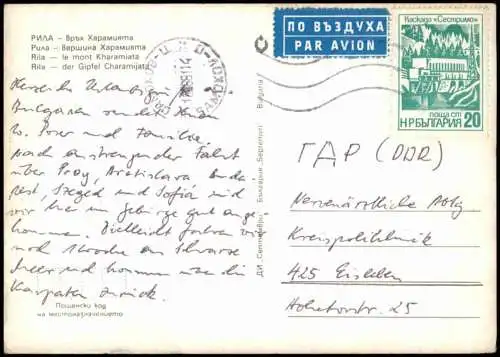 РИЛА – Връх Харамията
Рила – Вершина Харамията
Rila – le mont Kharamiata
Rila – der Gipfel Charamijata
ПО ВЪЗДУХА
PAR AVION
Каскада «Сестримо»
ПОЩА СТ
НР БЪЛГАРИЯ 20
SAMOKOV
Herzliche Urlaubsgrüße
Bulgarien senden Ihnen
u. Familie
nach anstrengender Fahrt
über Prag, Bratislava, Buda-
pest, Szeged und Sofia sind
wir hier im Gebirge gut ange-
kommen. Vielleicht fahren wir
noch 1 Woche ans Schwarze
Meer und kommen über die
Karpaten zurück.
Пощенски код
на местоназначението
ДИ „Септември“ Българи́я „Septemvri“ Bulgaria
ГДР (DDR)
Nervenärztliche Abtlg
Kreispoliklinik
425 Eisleben
Hohetorstr. 25